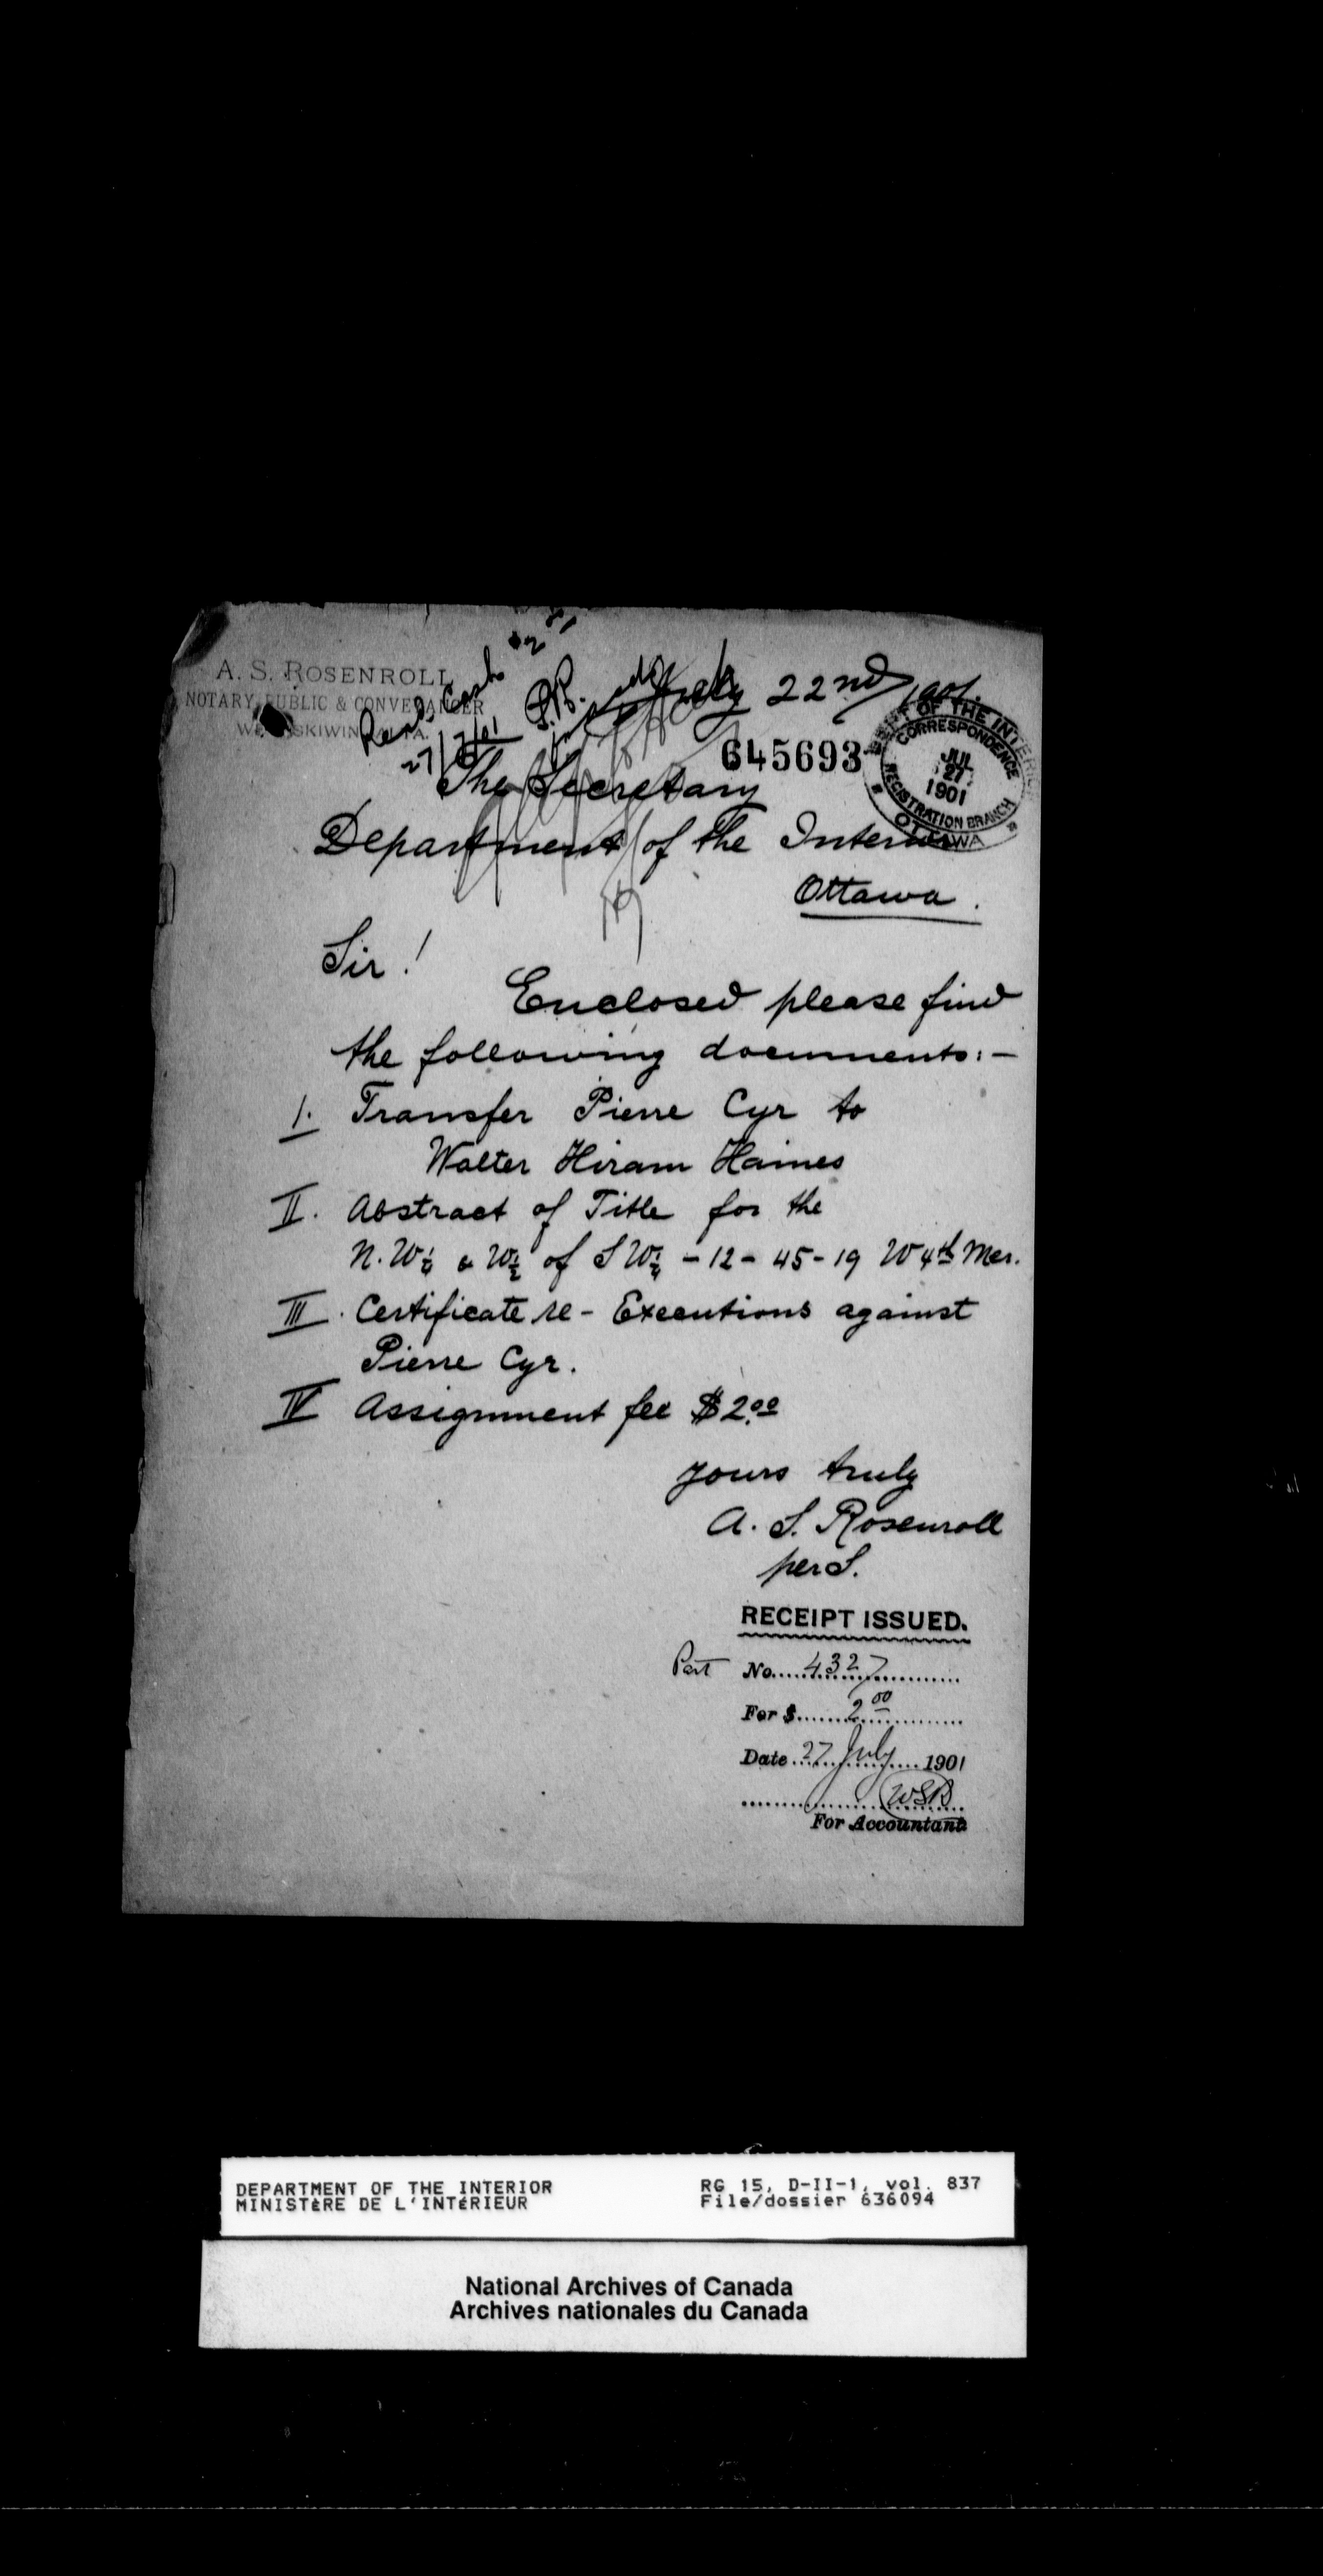 A. S. ROSENROLL
NOTARY PUBLIC & CONVEYANCER
Recd Cash $2 00
27/7/01 P.B.
July 22nd 1901.
645693
DEPT OF THE INTERIOR
CORRESPONDENCE
JUL
27
1901
REGISTRATION BRANCH
OTTAWA
The Secretary
Department of the Interior
Ottawa.
Sir!
Enclosed please find
the following documents:-
1. Transfer Pierre Cyr to
Walter Hiram Haines
II. Abstract of Title for the
N.W¼ & W½ of SW¼ - 12 - 45 - 19 W 4th Mer.
III. Certificate re - Executions against
Pierre Cyr.
IV Assignment fee $2.00
yours truly
A. S. Rosenroll
per S.
RECEIPT ISSUED.
Part No. 4327
For $ 2 00
Date 27 July 1901
WSB
For Accountant
DEPARTMENT OF THE INTERIOR
MINISTÈRE DE L'INTÉRIEUR
RG 15, D-II-1, vol. 837
File/dossier 636094
National Archives of Canada
Archives nationales du Canada